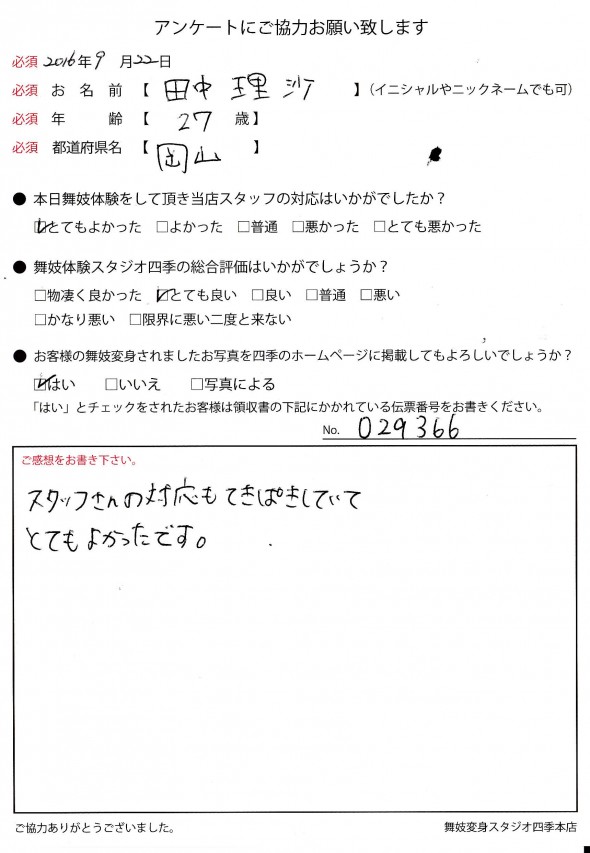 アンケートにご協力お願い致します
必須 2016年9月22日
必須 お名前【 田中 理沙 】（イニシャルやニックネームでも可）
必須 年齢【 27 歳】
必須 都道府県名【 岡山 】
● 本日舞妓体験をして頂き当店スタッフの対応はいかがでしたか？
☑とてもよかった □よかった □普通 □悪かった □とても悪かった
● 舞妓体験スタジオ四季の総合評価はいかがでしょうか？
□物凄く良かった ☑とても良い □良い □普通 □悪い
□かなり悪い □限界に悪い二度と来ない
● お客様の舞妓変身されましたお写真を四季のホームページに掲載してもよろしいでしょうか？
☑はい □いいえ □写真による
「はい」とチェックをされたお客様は領収書の下記にかかれている伝票番号をお書きください。
No. 029366
ご感想をお書き下さい。
スタッフさんの対応もてきぱきしていて
とてもよかったです。
ご協力ありがとうございました。 舞妓変身スタジオ四季本店